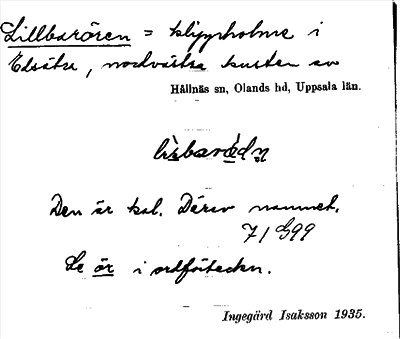 Lillbarören = klippholme i
Edsätra, nordvästra kusten av
Hållnäs sn, Olands hd, Uppsala län.
Den är kal. Därav namnet.
7/ 699
Se ör i ordförteckn.
Ingegärd Isaksson 1935.